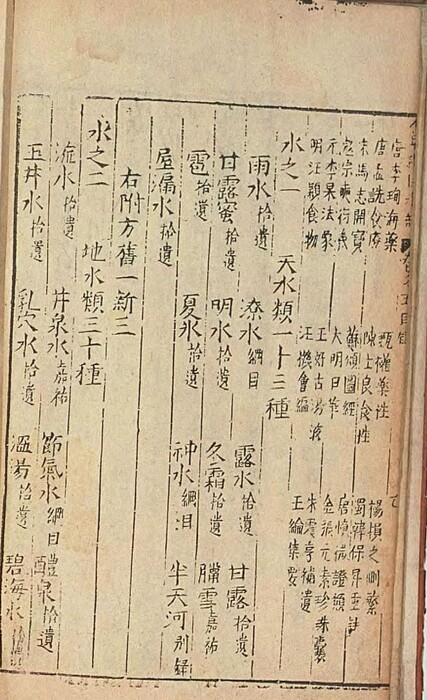 唐李珣海藥 甄權藥性 楊損之刪繁
唐孟詵食療 陳士良食性 蜀韓保昇重註
宋馬志開寶 蘇頌圖經 唐慎微證類
寇宗奭衍義 大明日華 金張元素珍珠囊
元李杲法象 王好古湯液 朱震亨補遺
明汪穎食物 汪機會編 王綸集要
水之一 天水類一十三種
雨水拾遺 潦水綱目 露水拾遺 甘露拾遺
甘露蜜拾遺 明水拾遺 冬霜拾遺 臘雪嘉祐
雹拾遺 夏氷拾遺 神水綱目 半天河別錄
屋漏水拾遺
右附方舊一新三
水之二 地水類三十種
流水拾遺 井泉水嘉祐 節氣水綱目 醴泉拾遺
玉井水拾遺 乳穴水拾遺 溫湯拾遺 碧海水拾遺